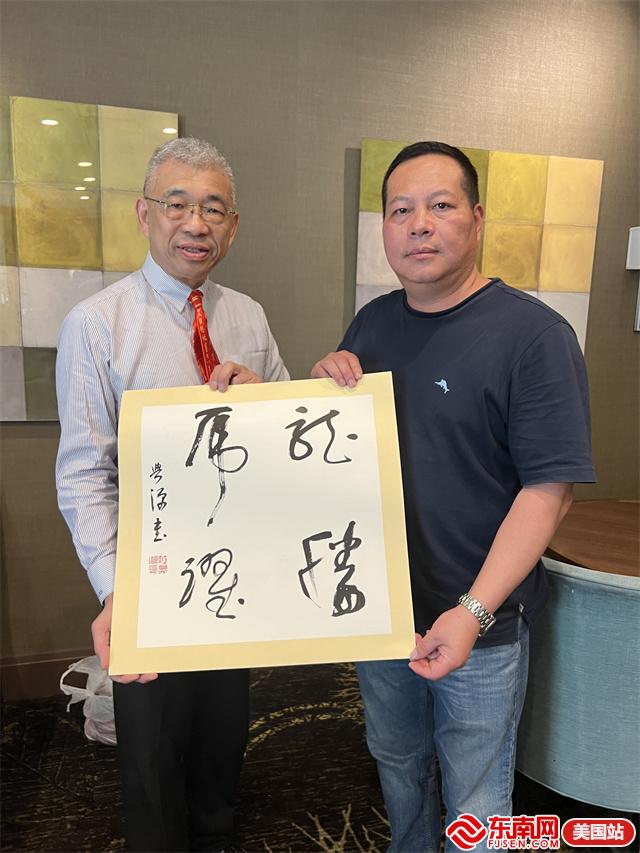 龍騰
虎躍
興源書
东南网
FJSEN.COM
美国站